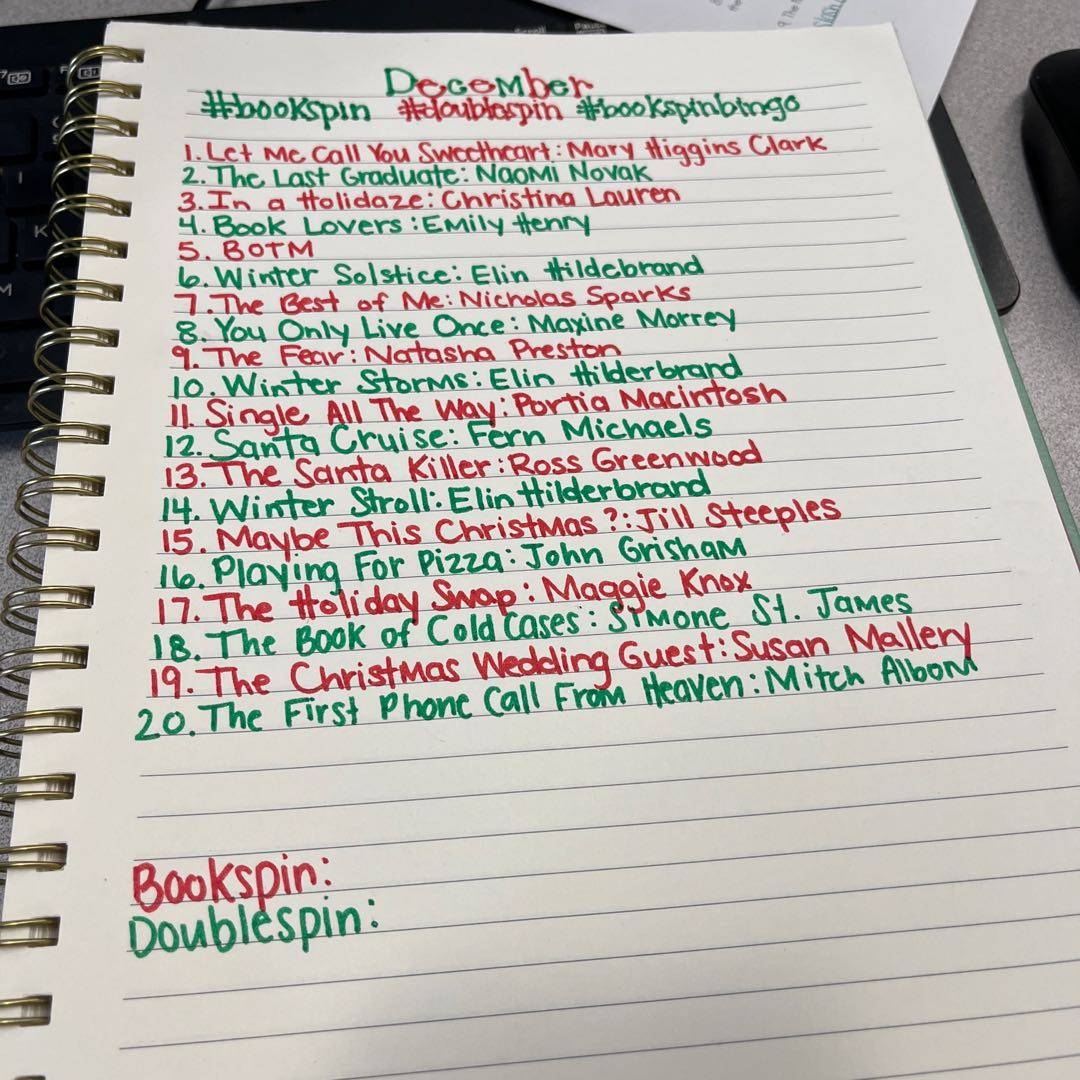 December
#bookspin #doublespin #bookspinbingo
1. Let Me Call You Sweetheart: Mary Higgins Clark
2. The Last Graduate: Naomi Novak
3. In a Holidaze: Christina Lauren
4. Book Lovers: Emily Henry
5. BOTM
6. Winter Solstice: Elin Hildebrand
7. The Best of Me: Nicholas Sparks
8. You Only Live Once: Maxine Morrey
9. The Fear: Natasha Preston
10. Winter Storms: Elin Hilderbrand
11. Single All The Way: Portia Macintosh
12. Santa Cruise: Fern Michaels
13. The Santa Killer: Ross Greenwood
14. Winter Stroll: Elin Hilderbrand
15. Maybe This Christmas?: Jill Steeples
16. Playing For Pizza: John Grisham
17. The Holiday Swap: Maggie Knox
18. The Book of Cold Cases: Simone St. James
19. The Christmas Wedding Guest: Susan Mallery
20. The First Phone Call From Heaven: Mitch Albom
Bookspin:
Doublespin: